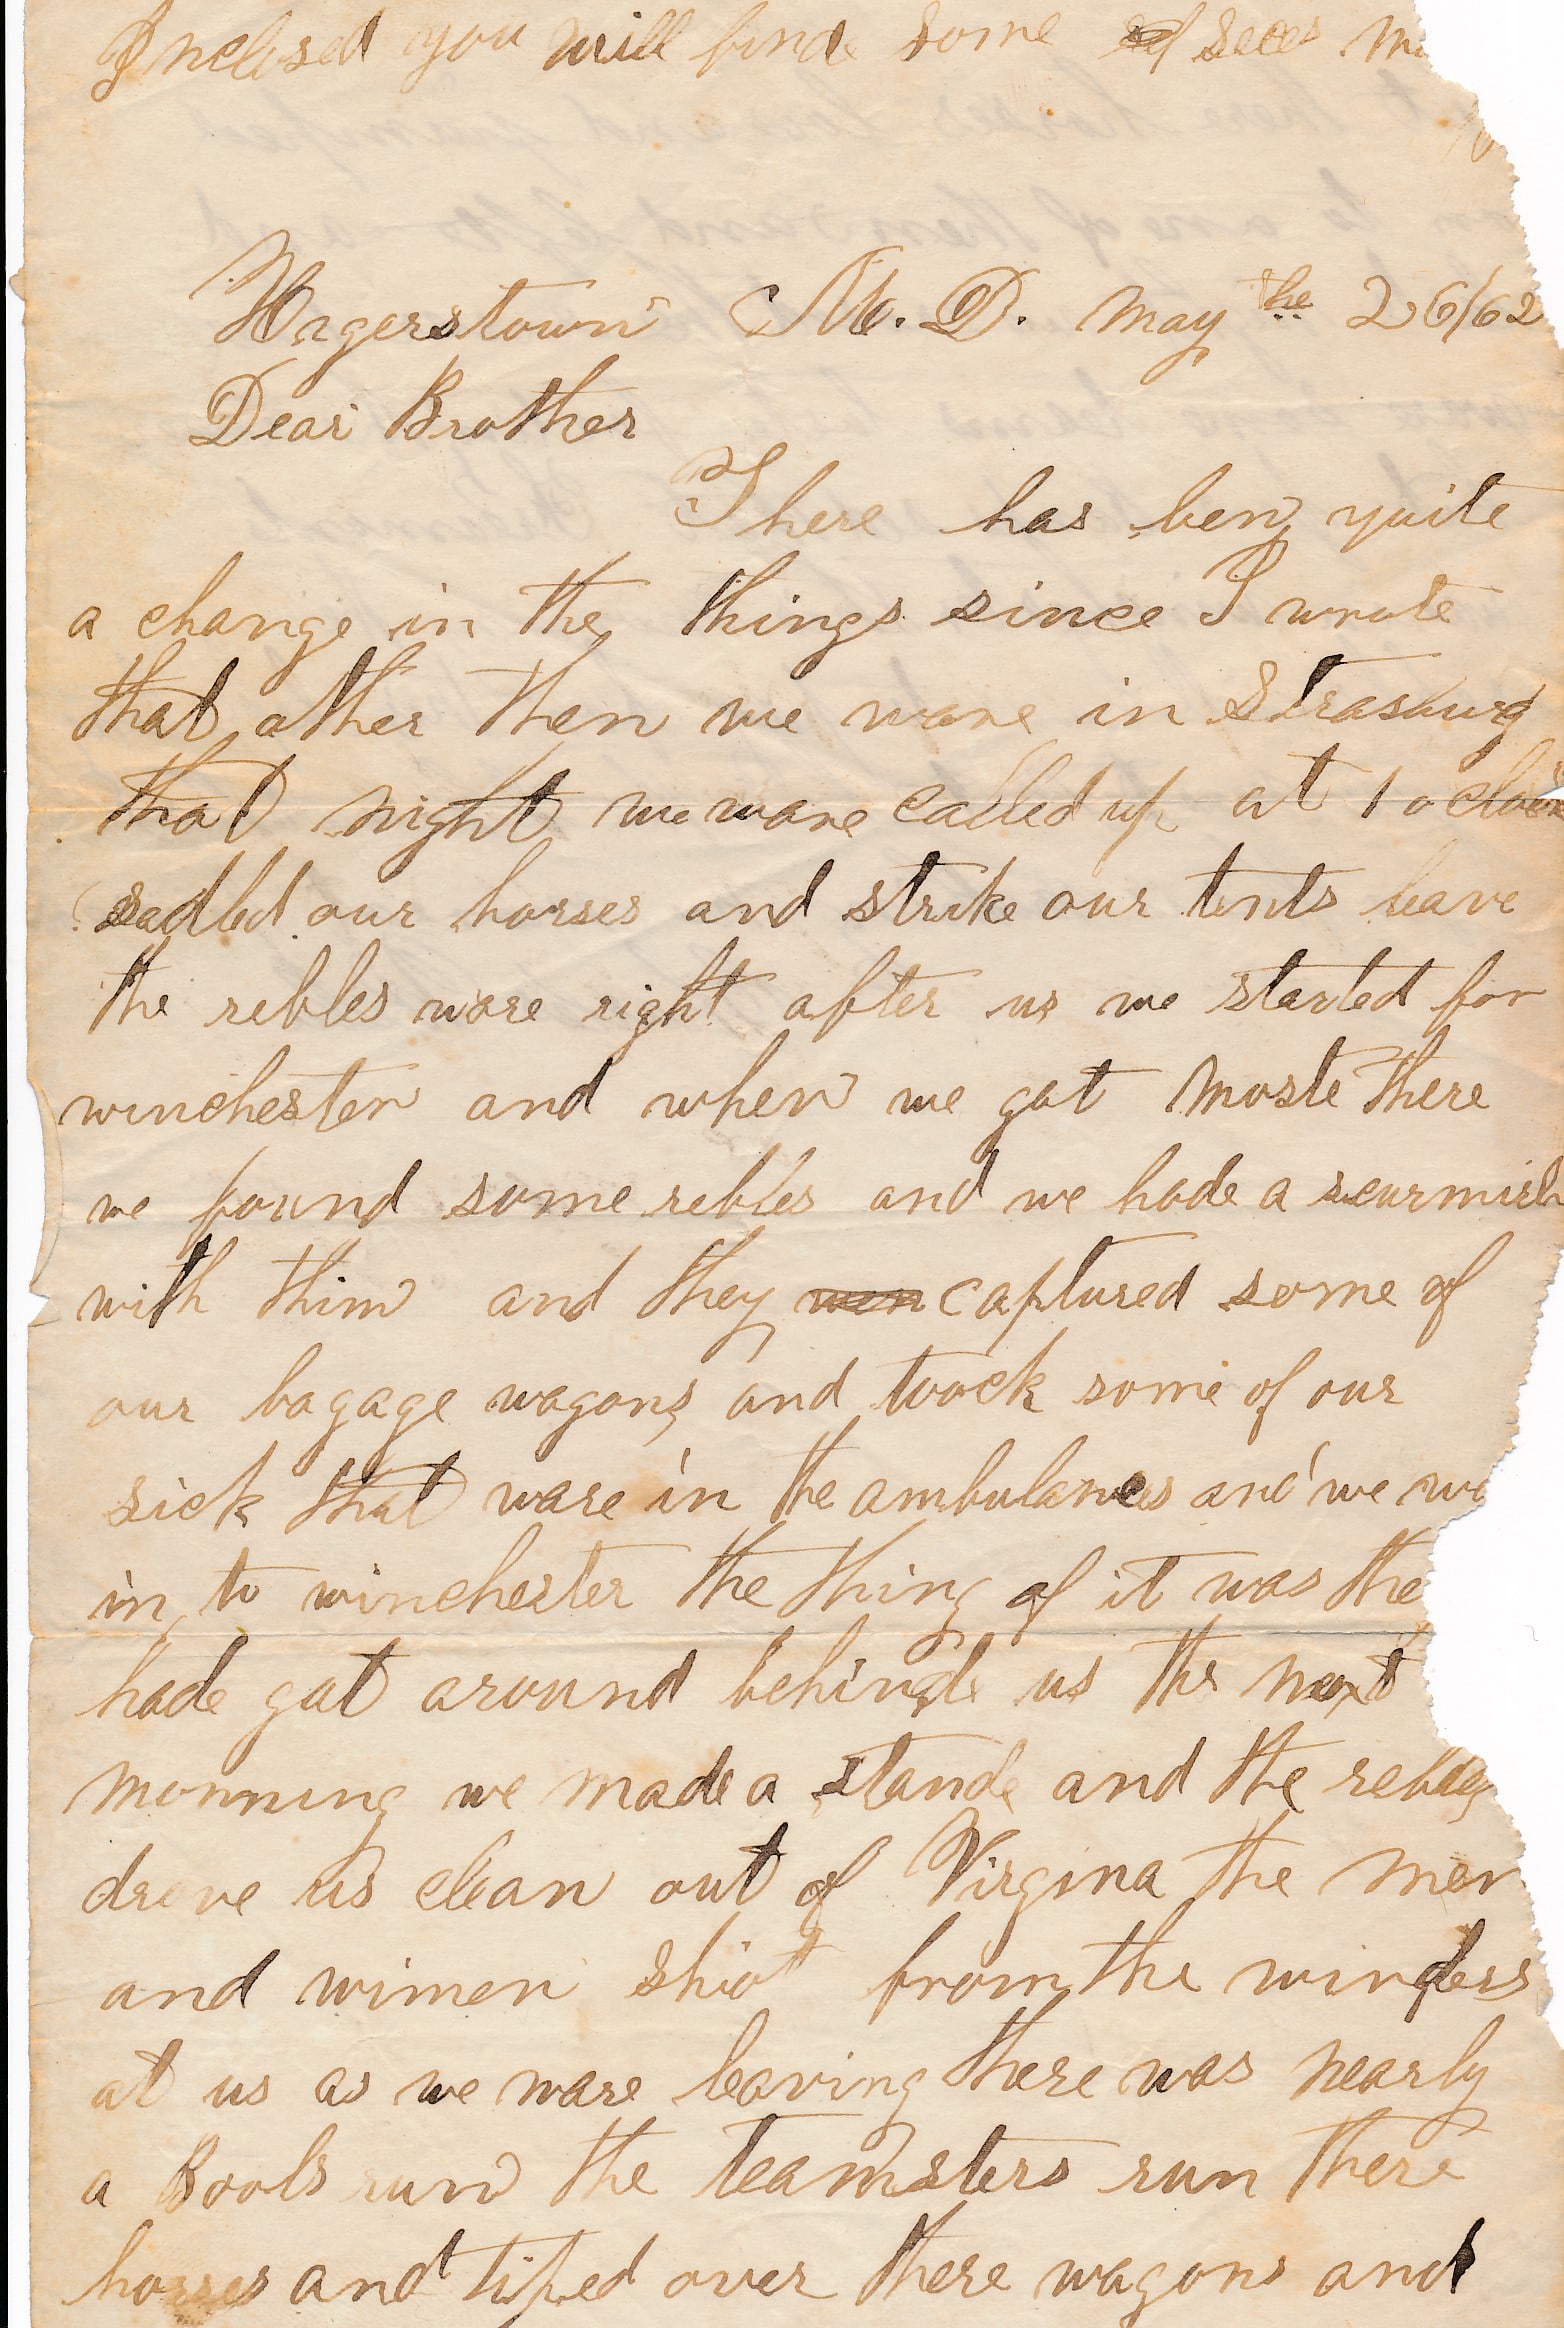 Inclosed you will finde some seces
Hagerstown M.D. May the 26/62
Dear Brother
There has ben quite
a change in the things since I wrote
that other then we ware in Strasburg
that night we ware called up at 1 oclock
sadled our horses and strike our tents leave
the rebles ware right after us we started for
winchester and when we got moste there
we found some rebles and we hade a scurmish
with thim and they captured some of
our bagage wagons and toock some of our
sick that ware in the ambulances and we
in to winchester the thing of it was the
hade got around behinde us the next
morning we made a stande and the rebles
drove us clean out of Virgina the men
and wimen shot from the winders
at us as we ware leaving there was nearly
a Bools run the teamsters run there
horses and tiped over there wagons and